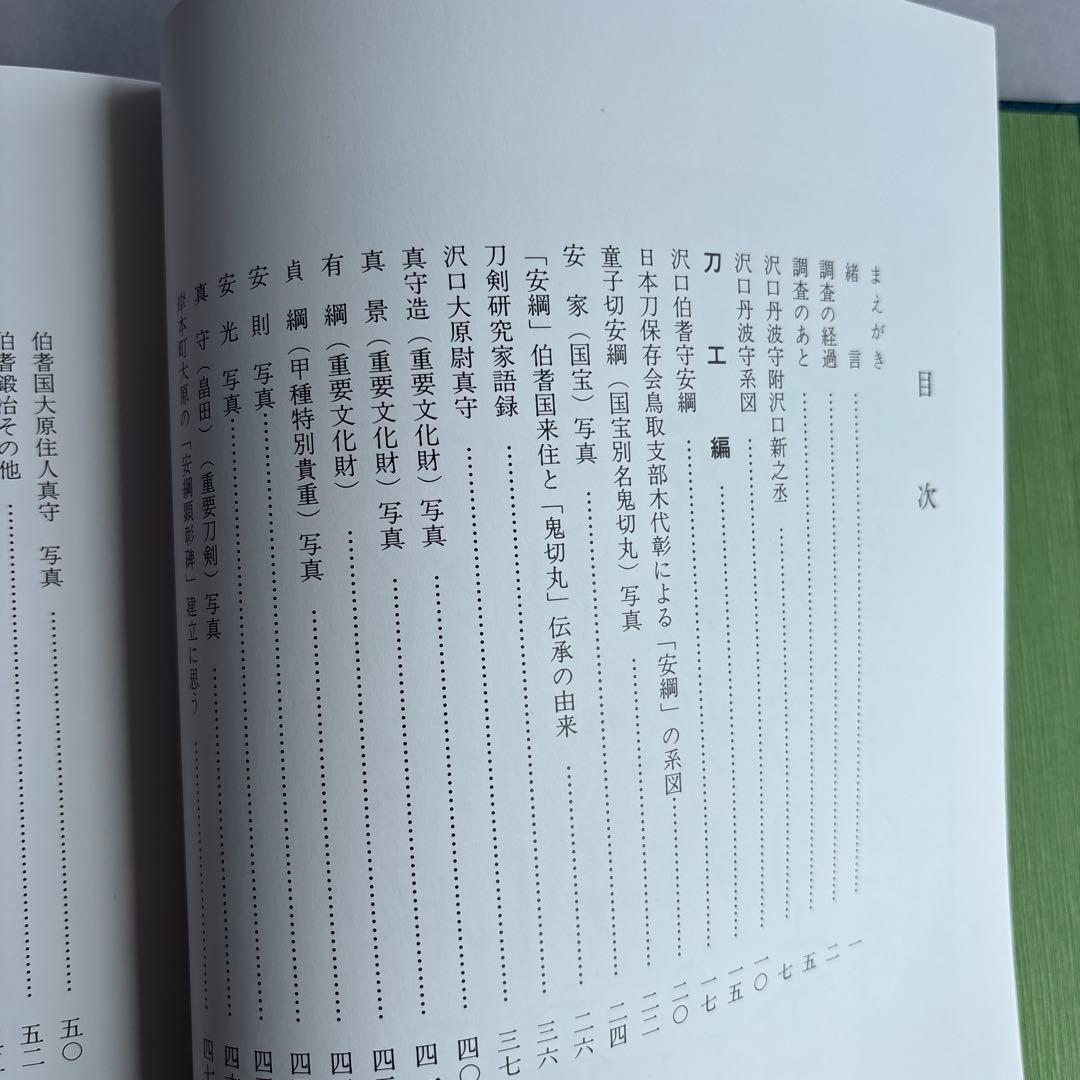 目次
まえがき……一
緒言……二
調査の経過……五
調査のあと……七
沢口丹波守附沢口新之丞……一〇
沢口丹波守系図……一五
刀工編……一七
沢口伯耆守安綱……二〇
日本刀保存会鳥取支部木代彰による「安綱」の系図……二二
童子切安綱（国宝別名鬼切丸）写真……二四
安家（国宝）写真……二六
「安綱」伯耆国来住と「鬼切丸」伝承の由来……三六
刀剣研究家語録……三七
沢口大原尉真守……四〇
真守造（重要文化財）写真……四
真景（重要文化財）写真……四
有綱（重要文化財）……四
貞綱（甲種特別貴重）写真……四
安則写真……四
安光写真……四
真守（畠田）（重要刀剣）写真……四
岸本町大原の「安綱顕彰碑」建立に思う……四
伯耆国大原住人真守　写真……五〇
伯耆鍛冶その他……五二